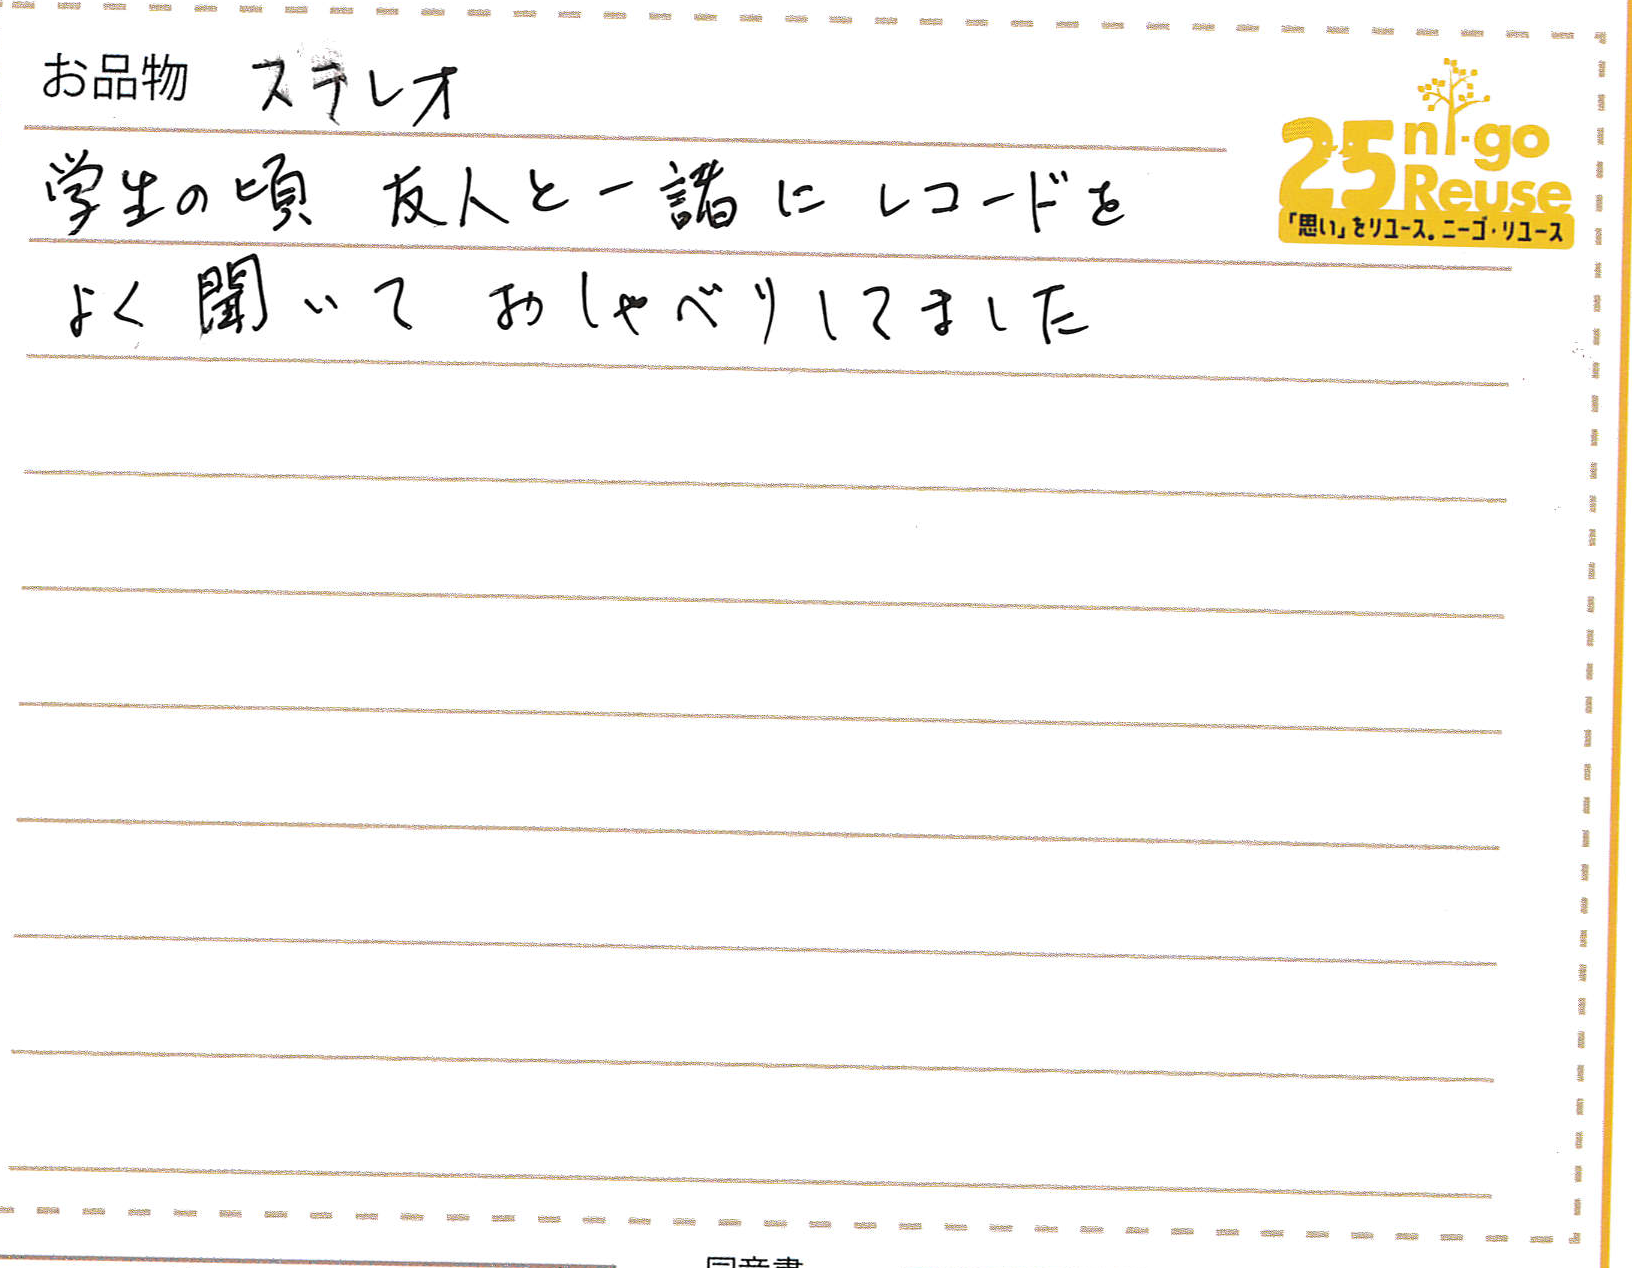 お品物 ステレオ
25 ni-go
Reuse
「思い」をリユース。ニーゴ・リユース
学生の頃 友人と一諸に レコードを
よく聞いて おしゃべりしてました
同意書